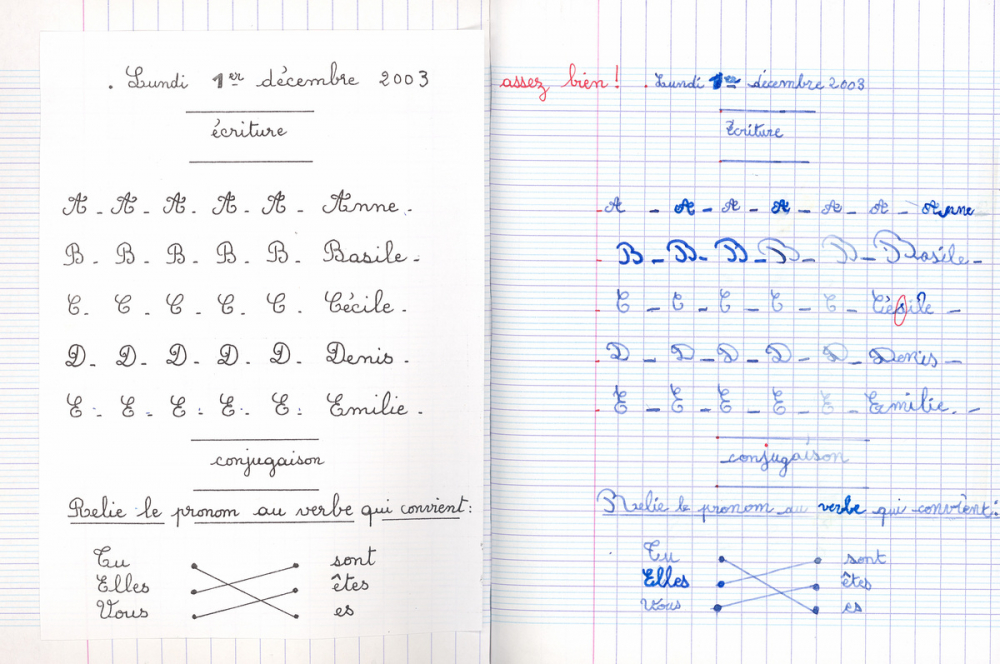 . Lundi 1er décembre 2003
écriture
A - A - A - A - A - Anne -
B - B - B - B - B - Basile -
C - C - C - C - C - Cécile -
D - D - D - D - D - Denis -
E - E - E - E - E - Emilie -
conjugaison
Relie le pronom au verbe qui convient :
Tu sont
Elles êtes
Vous es
assez bien !
. Lundi 1er décembre 2003
Écriture
A - A - A - A - A - A - Anne
B - B - B - B - B - Basile -
C - C - C - C - C - Cécile -
D - D - D - D - D - Denis -
E - E - E - E - E - Emilie. -
conjugaison
Relie le pronom au verbe qui convient :
Tu sont
Elles êtes
Vous es